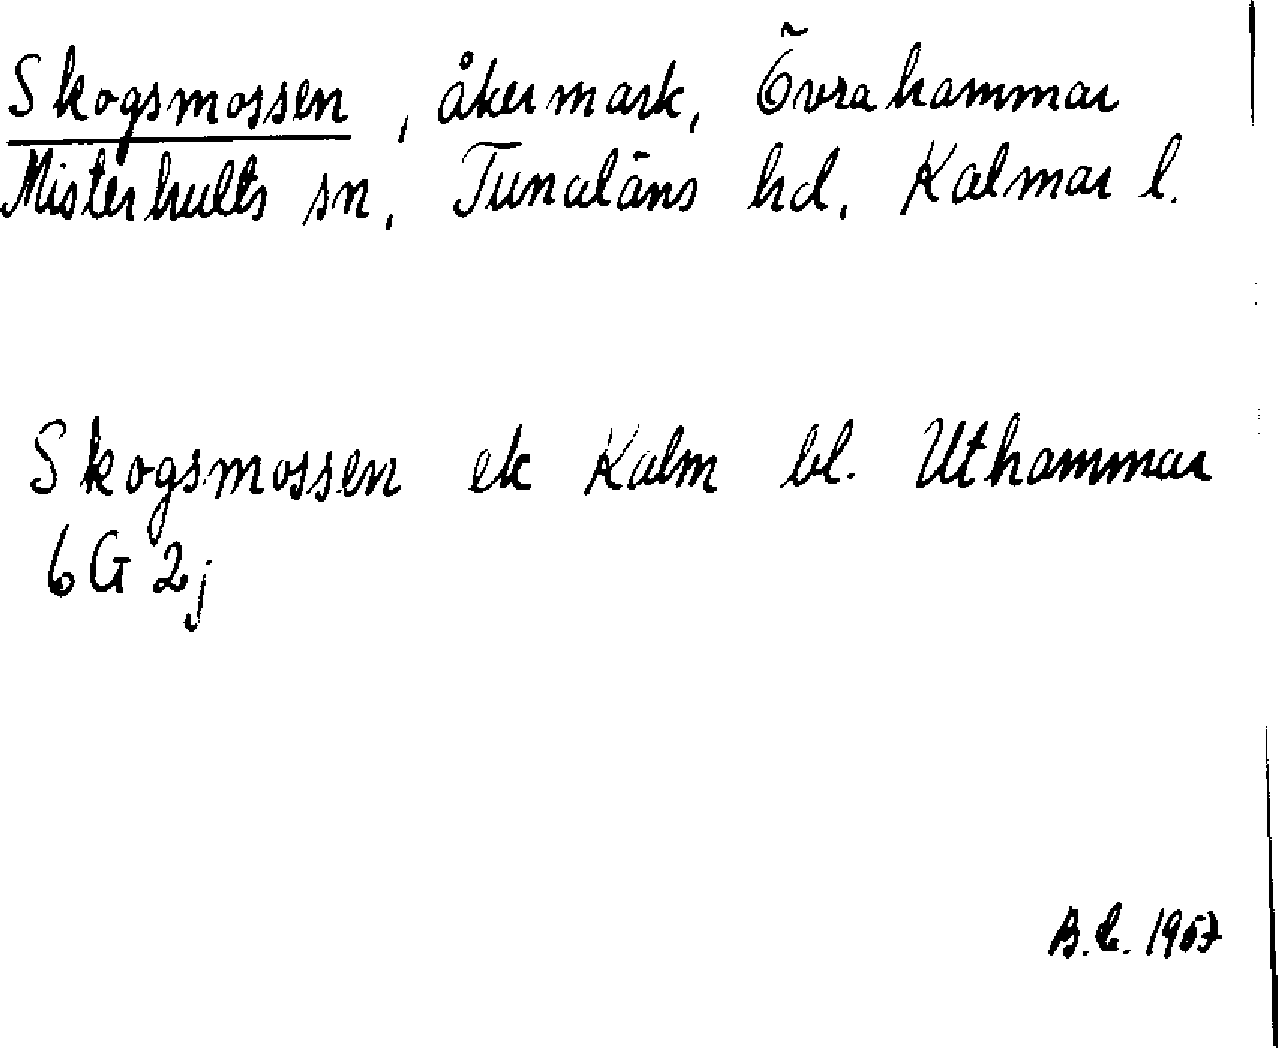 Skogsmossen, åkermark, Övrahammar
Misterhults sn, Tunaläns hd, Kalmar l.
Skogsmossen ek Kalm bl. Uthammar
6G 2j
B. L. 1967